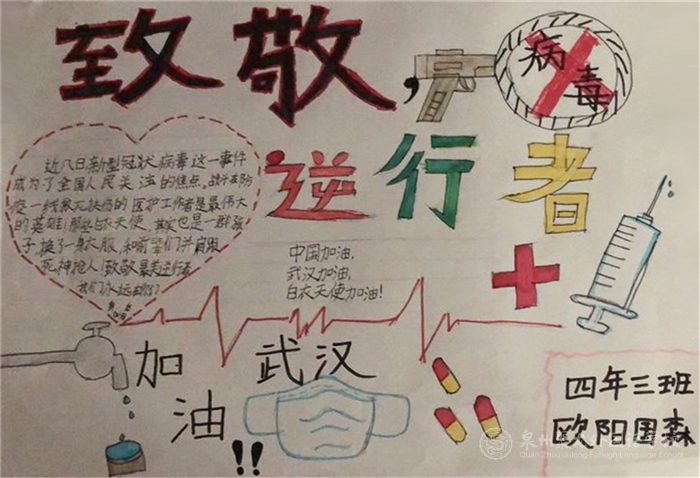 致敬，
病毒
逆行者
近八日新型冠状病毒这一事件
成为了全国人民关注的焦点。战斗在防
疫一线救死扶伤的医护工作者是最伟大
的英雄！那些白衣天使，其实也是一群孩
子，换了一身衣服，和前辈们并肩跟
死神抢人！致敬最美逆行者
我们永远
中国加油，
武汉加油，
白衣天使加油！
加油
武汉
!!
四年三班
欧阳国森
Quan Zhou Juxing Foreign Language School